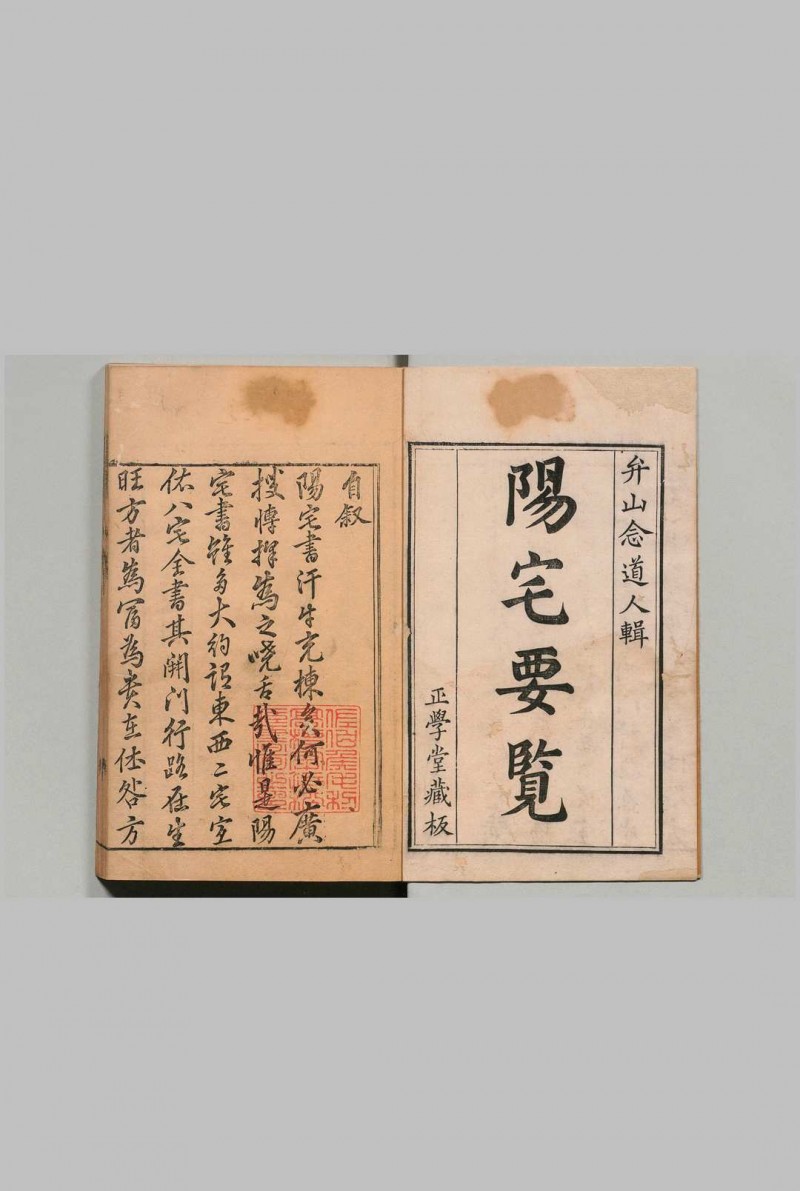 弁山念道人輯
陽宅要覧
正學堂藏板
自叙
陽宅書汗牛充棟矣何必廣
搜博擇為之嘵舌哉惟是陽
宅書雖多大約語東西二宅室
依八宅全書其開门行路在生
旺方者為富為貴在休咎方